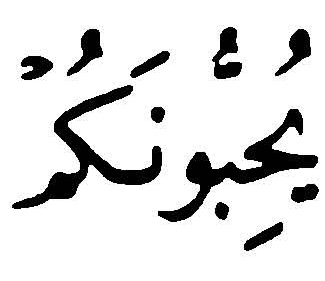 يُحِبُّونَكُمْ